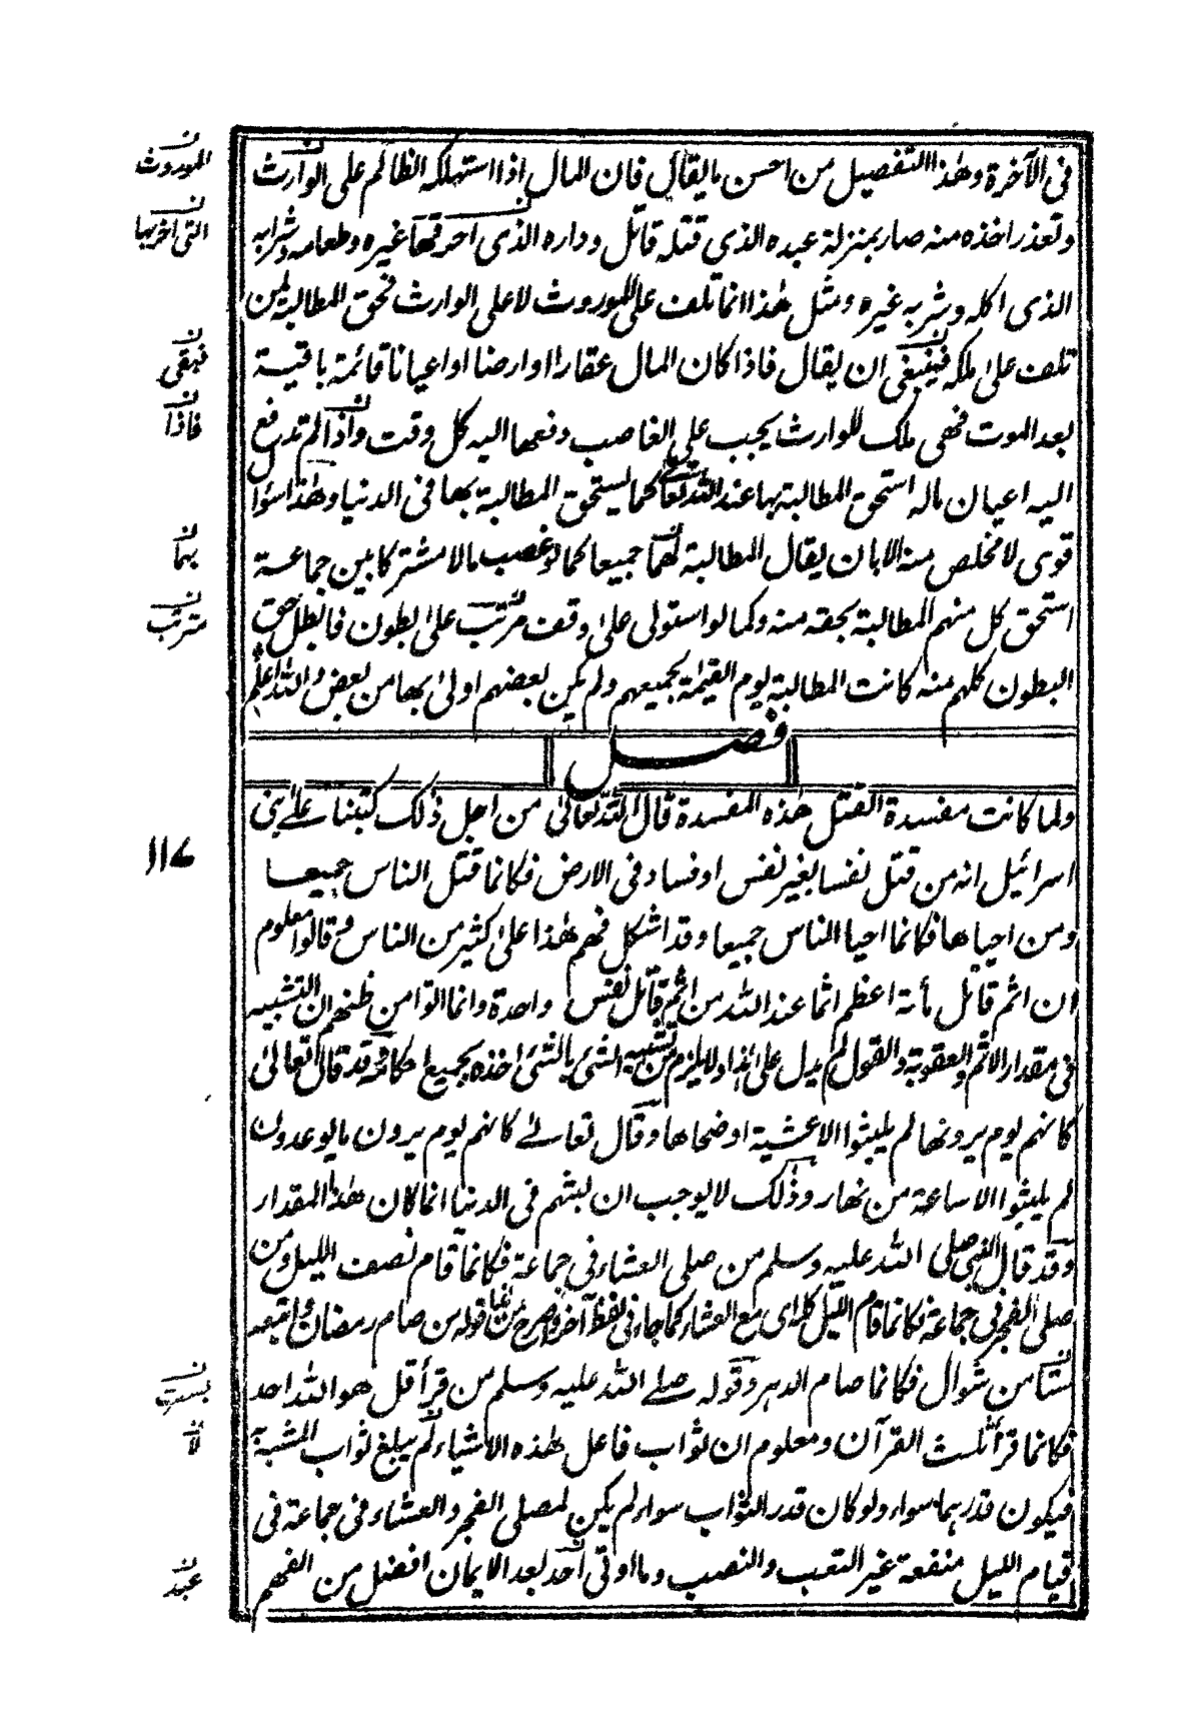 فى الآخرة وهذا التفصيل من احسن ما يقال فان المال اذا استهلكه الظالم على الوارث
وتعذر اخذه منه صار بمنزلة عبده الذى قتله قاتل وداره الذى احرقها غيره وطعامه وشرابه
الذى اكله وشربه غيره ومثل هذا انما تلف على الموروث لا على الوارث فحق المطالبة لمن
تلف على ملكه فينبغى ان يقال فاذا كان المال عقارا او ارضا او اعيانا قائمة باقية
بعد الموت فهى ملك للوارث يجب على الغاصب دفعها اليه كل وقت واذا لم تدفع
اليه اعيان ماله استحق المطالبة بها عند الله تعالى كما يستحق المطالبة بها فى الدنيا وهذا سؤال
قوى لا مخلص منه الا بان يقال المطالبة لهما جميعا كما لو غصب مالا مشتركا بين جماعة
استحق كل منهم المطالبة بحقه منه وكما لو استولى على وقف مرتب على بطون فابطل حق
البطون كلهم منه كانت المطالبة يوم القيمة لجميعهم ولم يكن بعضهم اولى بها من بعض والله اعلم
فصل
ولما كانت مفسدة القتل هذه المفسدة قال الله تعالى من اجل ذلك كتبنا على بنى
اسرائيل انه من قتل نفسا بغير نفس او فساد فى الارض فكانما قتل الناس جميعا
ومن احياها فكانما احيا الناس جميعا وقد اشكل فهم هذا على كثير من الناس وقالوا معلوم
ان اثم قاتل مائة اعظم اثما عند الله من اثم قاتل نفس واحدة وانما اتوا من ظنهم ان التشبيه
فى مقدار الاثم والعقوبة والقول لم يدل على هذا ولا يلزم من تشبيه الشئ بالشئ اخذه بجميع احكامه وقد قال تعالى
كانهم يوم يرونها لم يلبثوا الا عشية او ضحاها وقال تعالى كانهم يوم يرون ما يوعدون
لم يلبثوا الا ساعة من نهار وذلك لا يوجب ان لبثهم فى الدنيا انما كان هذا المقدار
وقد قال النبى صلى الله عليه وسلم من صلى العشاء فى جماعة فكانما قام نصف الليل ومن
صلى الفجر فى جماعة فكانما قام الليل كله اى مع العشاء كما جاء فى لفظ آخر واصرح من هذا قوله من صام رمضان واتبعه
ستا من شوال فكانما صام الدهر وقوله صلى الله عليه وسلم من قرأ قل هو الله احد
فكانما قرأ ثلث القرآن ومعلوم ان ثواب فاعل هذه الاشياء لم يبلغ ثواب المشبه
فيكون قدرهما سواء ولو كان قدر الثواب سواء لم يكن لمصلى الفجر والعشاء فى جماعة فى
قيام الليل منفعة غير التعب والنصب وما اوتى احد بعد الايمان افضل من الفهم
الموروث
التى احرقها
فبقى
فاذا
بهما
مترتب
١١٧
بست
لا
عبد